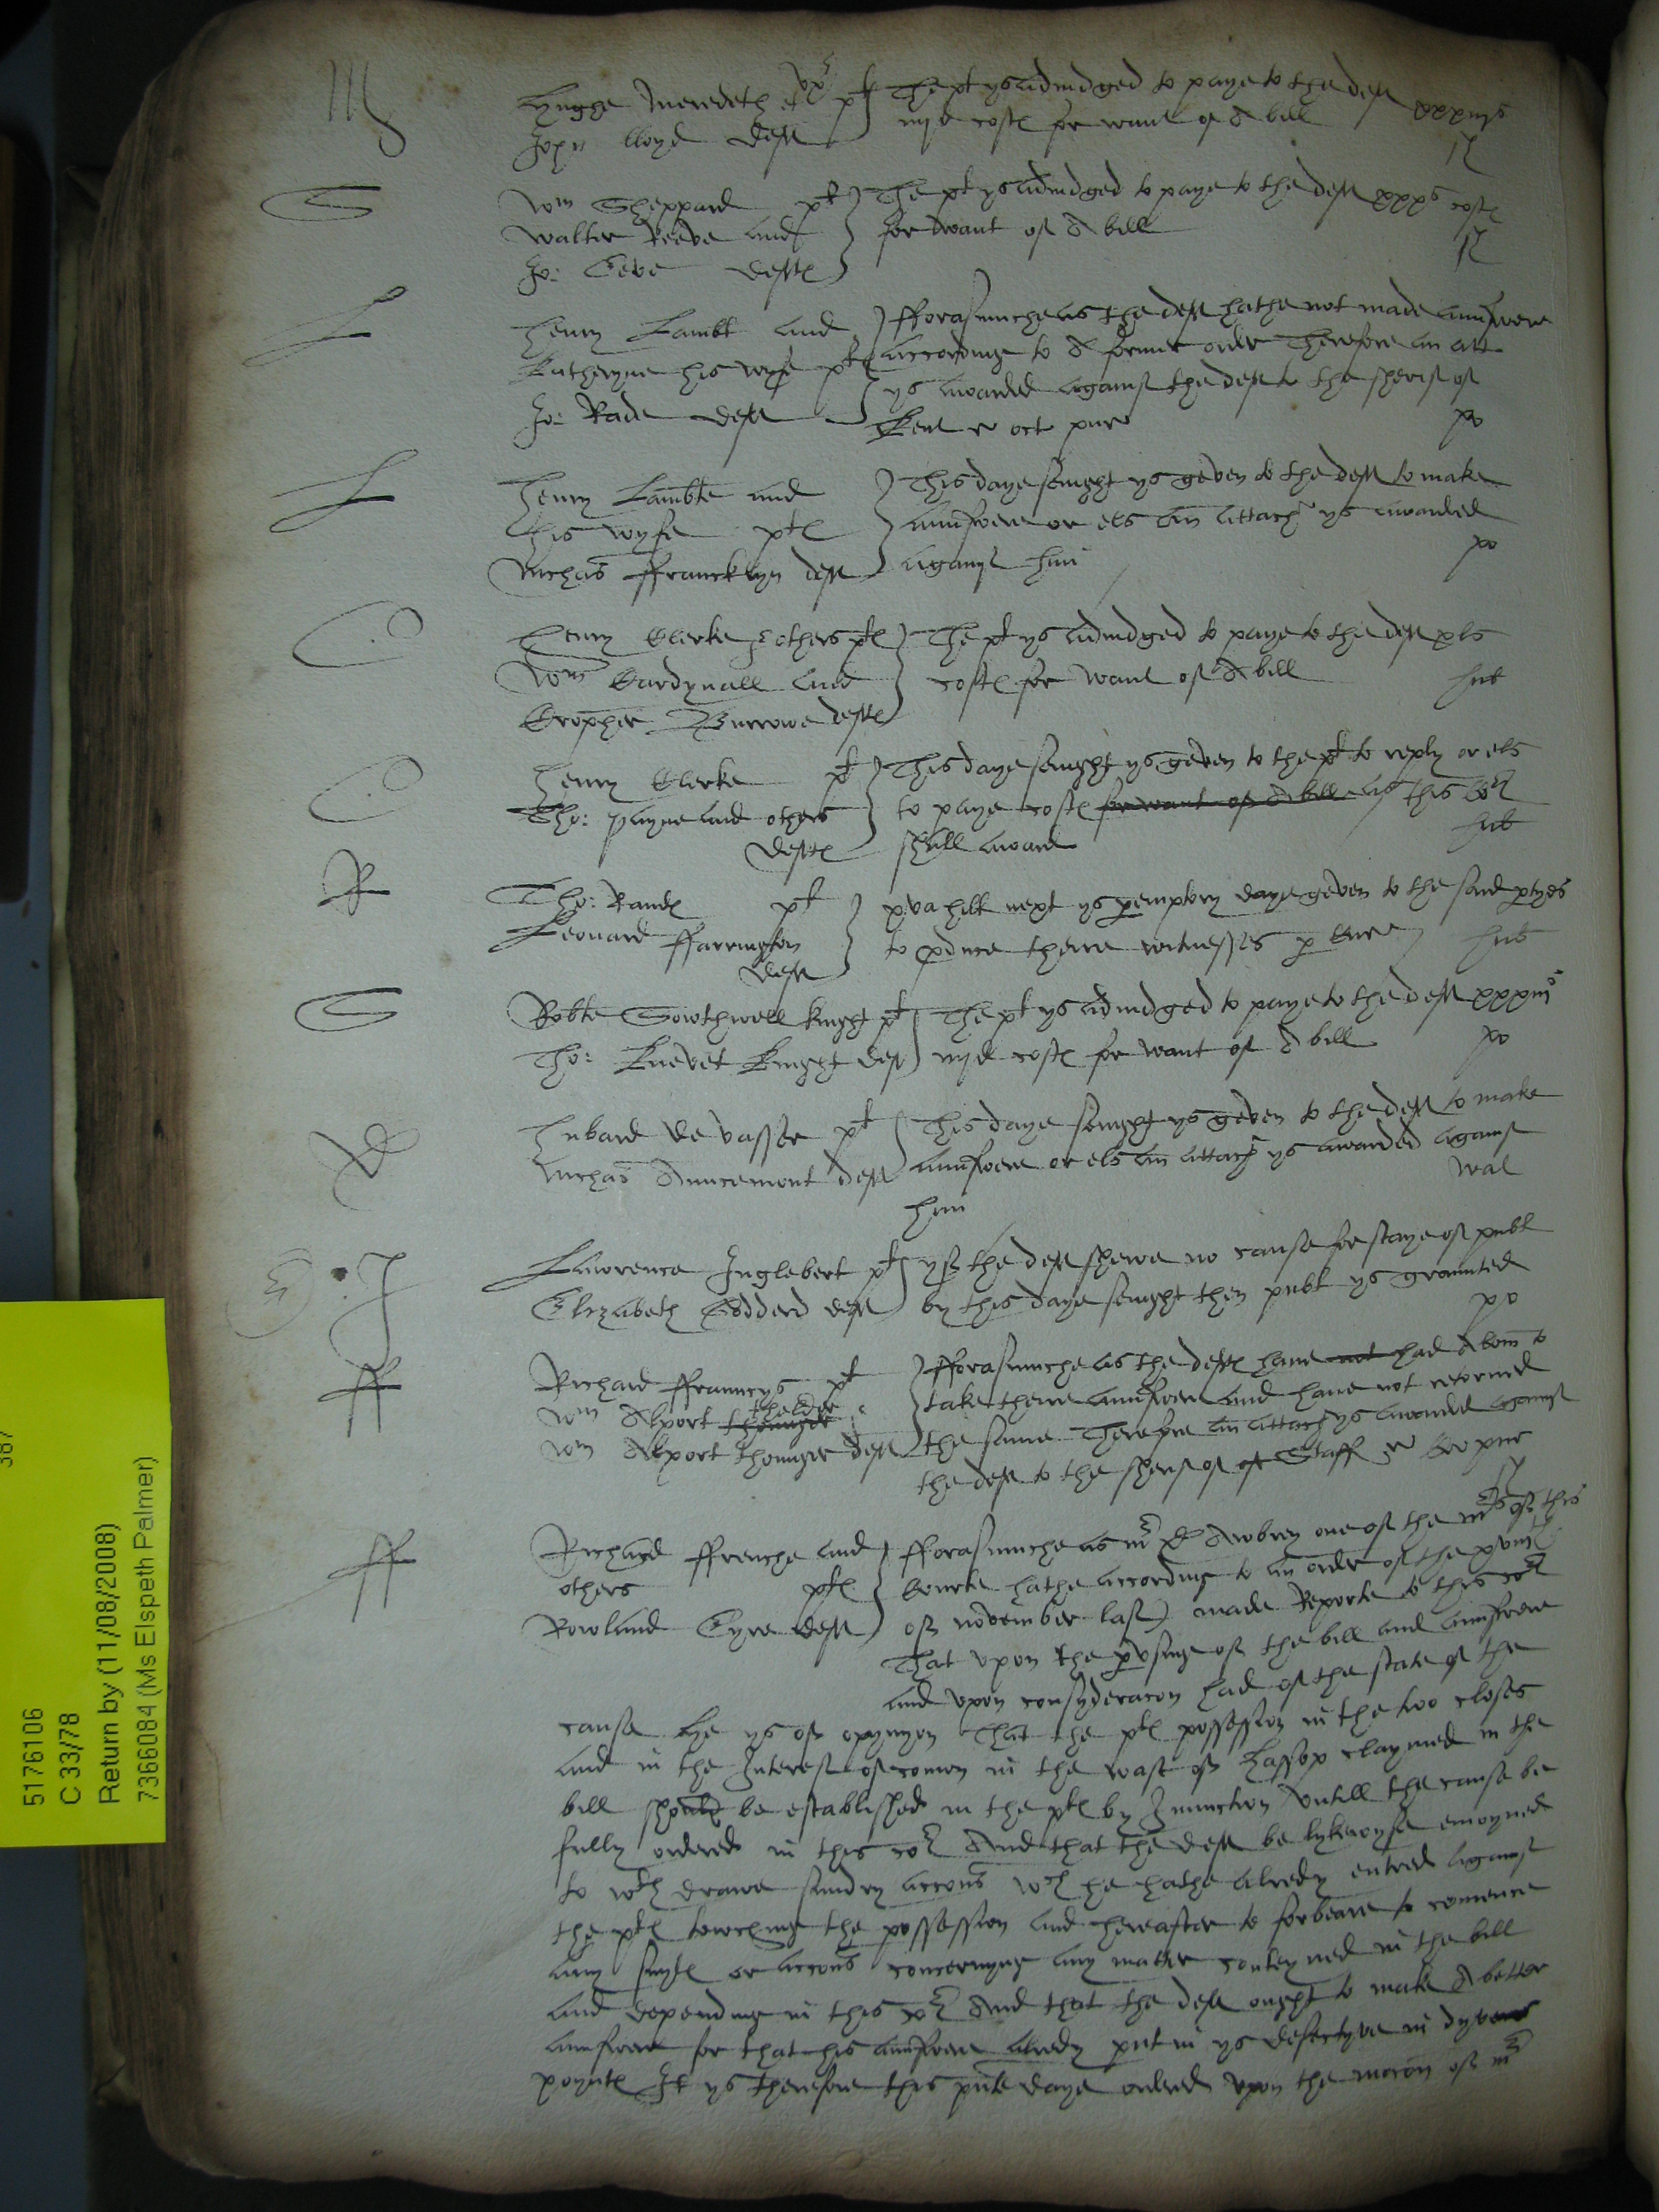 M
Hughe Meredeth et ux plt The plt ys adiudged to paye to the deft xxxiijs
John lloyd deft iiijd costs for want of A bill
S
Wm Sheppard plt The plt ys adiudged to paye to the deft xxxs costs
Walter Reeve and for want of A bill
Jo: Geve defts
L
Henry Lambt and fforasmuche as the deft hathe not made aunswere
Katheryne his wyfe plts accordinge to A former order Therefore an att
Jo: Rade deft ys awarded against the deft to the sherif of
Kent r oct pur
po
L
Henry Lambte and This daye senight ys geven to the deft to make
his wyfe plts aunswere or els an attach ys awarded
Nichas ffrancklyn deft against him
po
C
Henry Clerke & others plts The plt ys adiudged to paye to the deft xls
Wm Cardynall and costs for want of A bill
Cropher Burrowe defts
hub
C
Henry Clerke plt This daye senight ys geven to the plt to reply or els
Tho: Payne and others to paye costs for want of A bill as this Cort
defts shall award
hub
R
Tho: Rands plt xva hill next ys peremptory daye geven to the said ptyes
Leonard ffarrington to pduce theire witnesses p Cur
deft
hub
S
Robte Sowthwell knight plt The plt ys adiudged to paye to the deft xxxiijs
Tho: Knevet Knight def iiijd costs for want of A bill
po
D
Hubard de vasser plt This daye senight ys geven to the deft to make
Nichas Auncemont deft aunswere or els an attach ys awarded against
him
wal
J
Lawrence Inglebert plt yf the deft shewe no cause for staye of publ
Elizabeth Godderd deft by this daye senight then publ ys graunted
po
ff
Richard ffrauncys plt fforasmuche as the defts have not had A Com to
Wm Alport thounger thelder take theire aunswere and have not retorned
Wm Alport thounger deft the same Therefore an attach ys awarded against
the deft to the sherif of of Staff r Cro pur
ff
Richard ffrenche and fforasmuche as mr D Awbrey one of the mrs of this
others plts Courte hathe according to an order of the xviijth
Rowland Eyre deft of november last made Reporte to this Cort
That upon the pusing of the bill and aunswere
and upon consyderacon had of the state of the
cause hye ys of opynyon That the plts possession in the two closes
and in the Interest of comon in the wast of Hassop claymed in the
bill should be established in the plts by Iniunction Untill the cause be
fully ordered in this Cort And that the deft be lykewyse enioyned
to wth drawe sundry accons wch he hathe alredy entred against
the plts towching the possession and hereafter to forbeare to comence
any suyts or accons concernyng any matter conteyned in the bill
and depending in this Cort And that the deft ought to make A better
aunswere for that his aunswere alredy put in ys defectyve in dyvers
poynts It ys therefore this pnte daye ordered upon the mocon of mr
387
5176106
C 33/78
Return by (11/08/2008)
7366084 (Ms Elspeth Palmer)